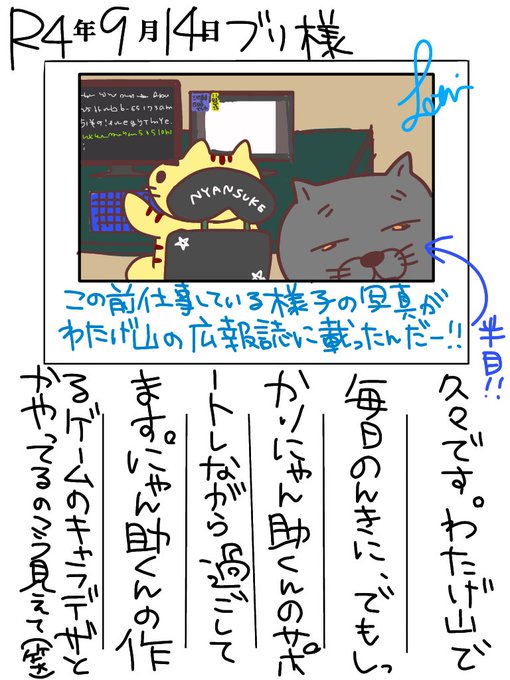 R4年9月14日ブリ様
NYANSUKE
この前仕事している様子の写真が
わたげ山の広報誌に載ったんだー!!
半目!!
久々です。わたげ山で
毎日のんきに、でもしっ
かりにゃん助くんのサポ
ートしながら過ごして
ます。にゃん助くんの作
るゲームのキャラデザと
かやってるのこう見えて(笑)